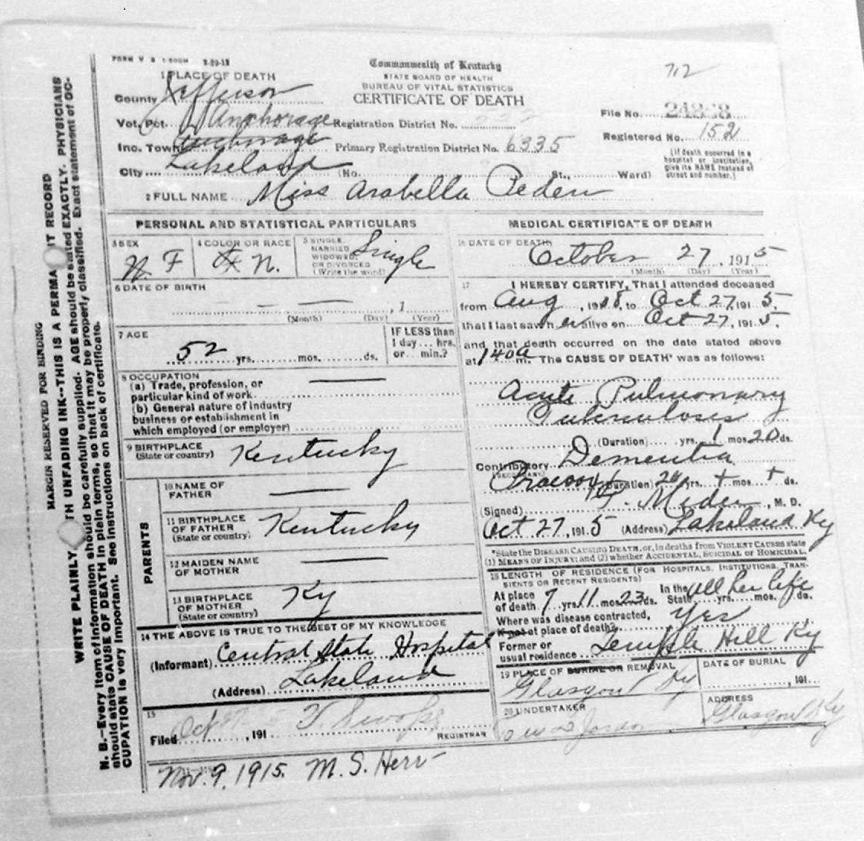 FORM V S
Commonwealth of Kentucky
STATE BOARD OF HEALTH
BUREAU OF VITAL STATISTICS
CERTIFICATE OF DEATH
712
1 PLACE OF DEATH
County Jefferson
Vot. Pct. Anchorage Registration District No.
File No.
Inc. Town Anchorage Primary Registration District No. 6335
Registered No. 152
City Lakeland (No. St., Ward)
[If death occurred in a hospital or institution, give its NAME instead of street and number.]
2 FULL NAME Miss Arabella Peden
PERSONAL AND STATISTICAL PARTICULARS
3 SEX F
4 COLOR OR RACE
5 SINGLE, MARRIED, WIDOWED, OR DIVORCED (Write the word) Single
6 DATE OF BIRTH
, 1
(Month) (Day) (Year)
7 AGE
52 yrs. mos. ds.
IF LESS than 1 day... hrs. or... min.?
8 OCCUPATION
(a) Trade, profession, or particular kind of work
(b) General nature of industry business or establishment in which employed (or employer)
9 BIRTHPLACE (State or country) Kentucky
PARENTS
10 NAME OF FATHER
11 BIRTHPLACE OF FATHER (State or country) Kentucky
12 MAIDEN NAME OF MOTHER
13 BIRTHPLACE OF MOTHER (State or country) Ky
14 THE ABOVE IS TRUE TO THE BEST OF MY KNOWLEDGE
(Informant) Central State Hospital
(Address) Lakeland
15
Filed Oct , 191
REGISTRAR
Nov. 9, 1915. M. S. Herr
MEDICAL CERTIFICATE OF DEATH
16 DATE OF DEATH October 27, 1915
(Month) (Day) (Year)
17 I HEREBY CERTIFY, That I attended deceased
from Aug , 191 , to Oct 27, 1915.
that I last saw her alive on Oct 27, 1915.
and that death occurred on the date stated above
at 140a m. The CAUSE OF DEATH* was as follows:
Acute Pulmonary
Tuberculosis
(Duration) yrs. 1 mos. 20 ds.
Contributory Dementia
(SECONDARY) Praecox (Duration) yrs. mos. ds.
(Signed) M. D.
Oct 27, 1915 (Address) Lakeland Ky
*State the DISEASE CAUSING DEATH, or, in deaths from VIOLENT CAUSES state (1) MEANS OF INJURY; and (2) whether ACCIDENTAL, SUICIDAL or HOMICIDAL.
18 LENGTH OF RESIDENCE (FOR HOSPITALS, INSTITUTIONS, TRANSIENTS OR RECENT RESIDENTS)
At place of death 7 yrs. 11 mos. 23 ds. In the State all her life yrs. mos. ds.
Where was disease contracted, if not at place of death? Yes
Former or usual residence Temple Hill Ky
19 PLACE OF BURIAL OR REMOVAL Glasgow Ky
DATE OF BURIAL , 191
20 UNDERTAKER
ADDRESS Glasgow Ky
MARGIN RESERVED FOR BINDING
WRITE PLAINLY TH UNFADING INK--THIS IS A PERMA IT RECORD
N. B.--Every item of information should be carefully supplied. AGE should be stated EXACTLY. PHYSICIANS should state CAUSE OF DEATH in plain terms, so that it may be properly classified. Exact statement of OCCUPATION is very important. See instructions on back of certificate.